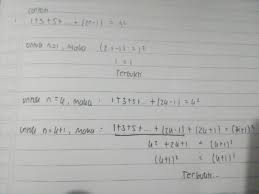 Contoh
1+3+5+ ... + (2n-1) = n²
untuk n=1, maka (2·1-1) = 1²
1 = 1
Terbukti
untuk n=k, maka : 1+3+5+ ... + (2k-1) = k²
untuk n=k+1, maka : 1+3+5+ ... + (2k-1) + (2k+1) = (k+1)²
k² + 2k+1 = (k+1)²
(k+1)² = (k+1)²
Terbukti...